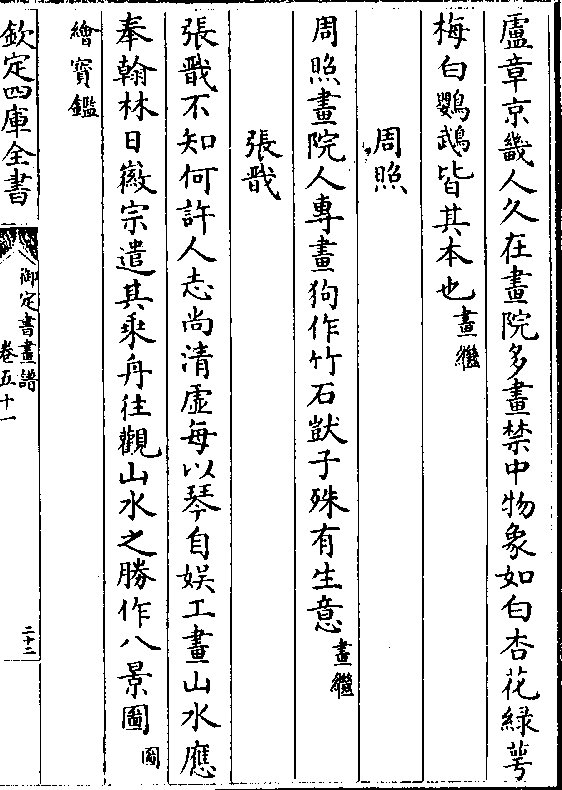 盧章京畿人久在畫院多畫禁中物象如白杏花緑萼
梅白鸚鵡皆其本也畫繼
周照
周照畫院人專畫狗作竹石獃子殊有生意畫繼
張戩
張戩不知何許人志尚清虛每以琴自娱工畫山水應
奉翰林日徽宗遣其乘舟往觀山水之勝作八景圖圖
繪寶鑑
欽定四庫全書
御定書畫譜
卷五十一
二十二